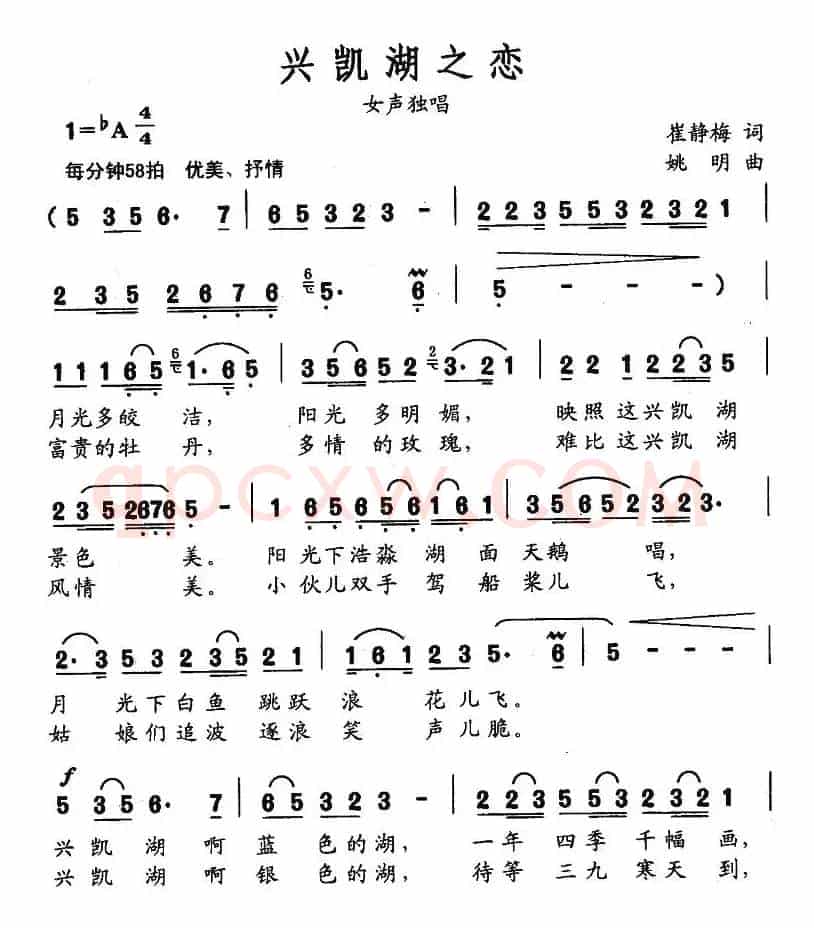 兴凯湖之恋
女声独唱
1=♭A 4/4
崔静梅 词
每分钟58拍 优美、抒情
姚 明 曲
( 5 3 5 6· 7 | 6 5 3 2 3 - | 2 2 3 5 5 3 2 3 2 1 |
2 3 5 2 6 7 6 6 5· 6 | 5 - - - ) |
1 1 1 6 5 6 1· 6 5 | 3 5 6 5 2 2 3· 2 1 | 2 2 1 2 2 3 5 |
月光多皎 洁, 阳光 多明媚, 映照这兴凯 湖
富贵的牡 丹, 多情 的玫瑰, 难比这兴凯 湖
2 3 5 2 6 7 6 5 - | 1 6 5 6 5 6 1 6 1 | 3 5 6 5 2 3 2 3· |
景色 美。 阳光下浩淼 湖 面 天鹅 唱,
风情 美。 小伙儿双手 驾 船 桨儿 飞,
2· 3 5 3 2 3 5 2 1 | 1 6 1 2 3 5· 6 | 5 - - - |
月 光下白鱼 跳跃 浪 花儿飞。
姑 娘们追波 逐浪 笑 声儿脆。
f
5 3 5 6· 7 | 6 5 3 2 3 - | 2 2 3 5 5 3 2 3 2 1 |
兴 凯 湖 啊 蓝 色的湖, 一年 四季 千幅 画,
兴 凯 湖 啊 银 色的湖, 待等 三九 寒天 到,
qpcxw.com